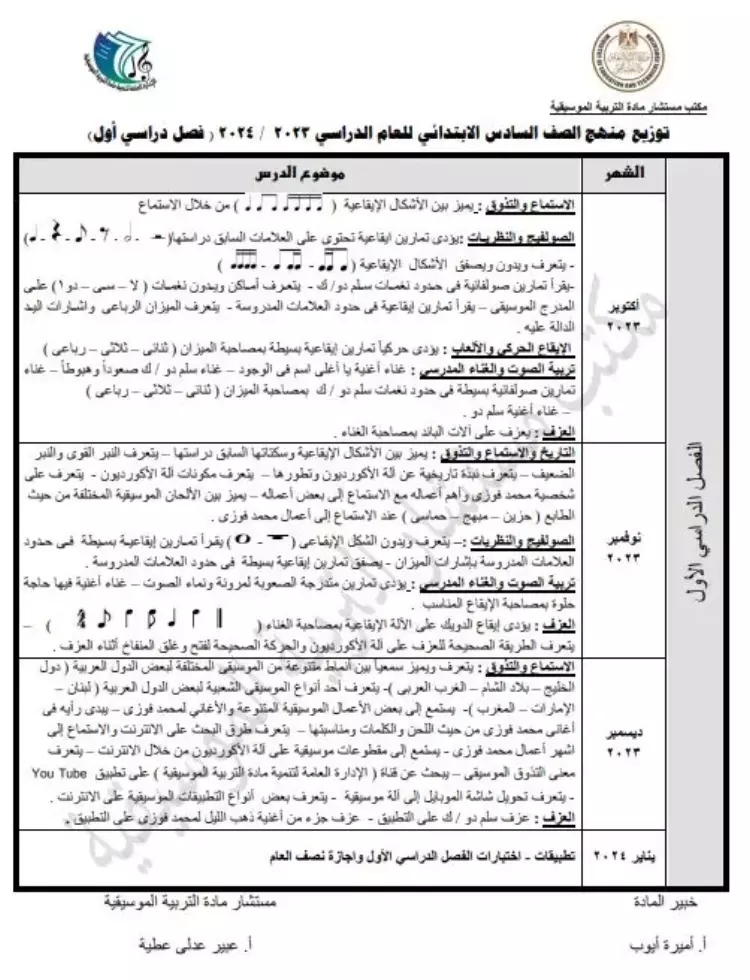 مكتب مستشار مادة التربية الموسيقية
توزيع منهج الصف السادس الابتدائي للعام الدراسي ٢٠٢٣ / ٢٠٢٤ ( فصل دراسي أول)
الشهر
موضوع الدرس
الفصل الدراسي الأول
أكتوبر
٢٠٢٣
الاستماع والتذوق : يميز بين الأشكال الإيقاعية ( ) من خلال الاستماع
الصولفيج والنظريات :يؤدى تمارين ايقاعية تحتوى على العلامات السابق دراستها( - - - - - )
- يتعرف ويدون ويصفق الأشكال الإيقاعية ( - - )
-يقرأ تمارين صولفائية فى حدود نغمات سلم دو/ ك - يتعرف أماكن ويدون نغمات ( لا – سى – دو١) على
المدرج الموسيقى – يقرأ تمارين إيقاعية فى حدود العلامات المدروسة - يتعرف الميزان الرباعى واشارات اليد
الدالة عليه .
الإيقاع الحركي والألعاب : يؤدى حركياً تمارين إيقاعية بسيطة بمصاحبة الميزان ( ثنائى – ثلاثى – رباعى )
تربية الصوت والغناء المدرسى : غناء أغنية يا أغلى اسم فى الوجود – غناء سلم دو / ك صعوداً وهبوطاً – غناء
تمارين صولفائية بسيطة فى حدود نغمات سلم دو / ك بمصاحبة الميزان ( ثنائى – ثلاثى – رباعى )
– غناء أغنية سلم دو .
العزف : يعزف على آلات الباند بمصاحبة الغناء .
نوفمبر
٢٠٢٣
التاريخ والاستماع والتذوق : يميز بين الأشكال الإيقاعية وسكتاتها السابق دراستها – يتعرف النبر القوى والنبر
الضعيف – يتعرف نبذة تاريخية عن آلة الأكورديون وتطورها – يتعرف مكونات آلة الأكورديون - يتعرف على
شخصية محمد فوزى وأهم أعماله مع الاستماع إلى بعض أعماله – يميز بين الألحان الموسيقية المختلفة من حيث
الطابع ( حزين – مبهج – حماسى ) عند الاستماع إلى أعمال محمد فوزى .
الصولفيج والنظريات :– يتعرف ويدون الشكل الإيقاعى ( - ) يقرأ تمارين إيقاعية بسيطة فى حدود
العلامات المدروسة بإشارات الميزان - يصفق تمارين إيقاعية بسيطة فى حدود العلامات المدروسة .
تربية الصوت والغناء المدرسى : يؤدى تمارين متدرجة الصعوبة لمرونة ونماء الصوت – غناء أغنية فيها حاجة
حلوة بمصاحبة الإيقاع المناسب .
العزف : يؤدى إيقاع الدويك على الآلة الإيقاعية بمصاحبة الغناء ( ) –
يتعرف الطريقة الصحيحة للعزف على آلة الأكورديون والحركة الصحيحة لفتح وغلق المنفاخ أثناء العزف .
ديسمبر
٢٠٢٣
الاستماع والتذوق : يتعرف ويميز سمعياً بين أنماط متنوعة من الموسيقى المختلفة لبعض الدول العربية ( دول
الخليج – بلاد الشام – الغرب العربى )- يتعرف أحد أنواع الموسيقى الشعبية لبعض الدول العربية ( لبنان –
الإمارات – المغرب )- يستمع إلى بعض الأعمال الموسيقية المتنوعة والأغانى لمحمد فوزى – يبدى رأيه فى
أغانى محمد فوزى من حيث اللحن والكلمات ومناسبتها – يتعرف طرق البحث على الانترنت والاستماع إلى
اشهر أعمال محمد فوزى - يستمع إلى مقطوعات موسيقية على آلة الأكورديون من خلال الانترنت – يتعرف
معنى التذوق الموسيقى – يبحث عن قناة ( الإدارة العامة لتنمية مادة التربية الموسيقية ) على تطبيق You Tube
- يتعرف تحويل شاشة الموبايل إلى آلة موسيقية - يتعرف بعض أنواع التطبيقات الموسيقية على الانترنت .
العزف : عزف سلم دو / ك على التطبيق - عزف جزء من أغنية ذهب الليل لمحمد فوزى على التطبيق .
يناير ٢٠٢٤
تطبيقات - اختبارات الفصل الدراسي الأول واجازة نصف العام
خبير المادة
مستشار مادة التربية الموسيقية
أ. أميرة أيوب
أ. عبير عدلى عطية
مكتب مستشار التربية الموسيقية